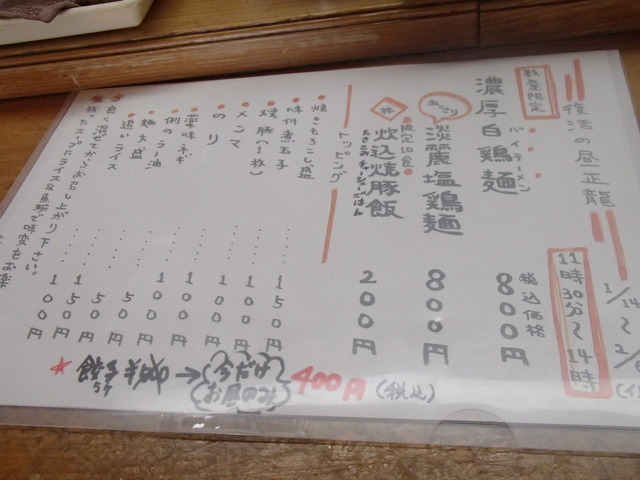 復活の昼正龍
1/14～2/
11時30分～14時
数量限定
濃厚白鶏麺
パイチーメン
税込価格
800円
あっさり
淡麗塩鶏麺
800円
限定10食
炊込焼豚飯
たきこみチャーシューごはん
200円
トッピング
焼きもろこし盛 150円
味付煮玉子 100円
焼豚(1枚) 100円
メンマ 100円
のり 100円
薬味ネギ 100円
例のラー油 50円
麺大盛 50円
追いライス 150円
良く混ぜてからお召し上がり下さい。
残ったスープにライス&魚粉で味変をお楽
餃子 → 今だけ お昼のみ 400円 (税込)